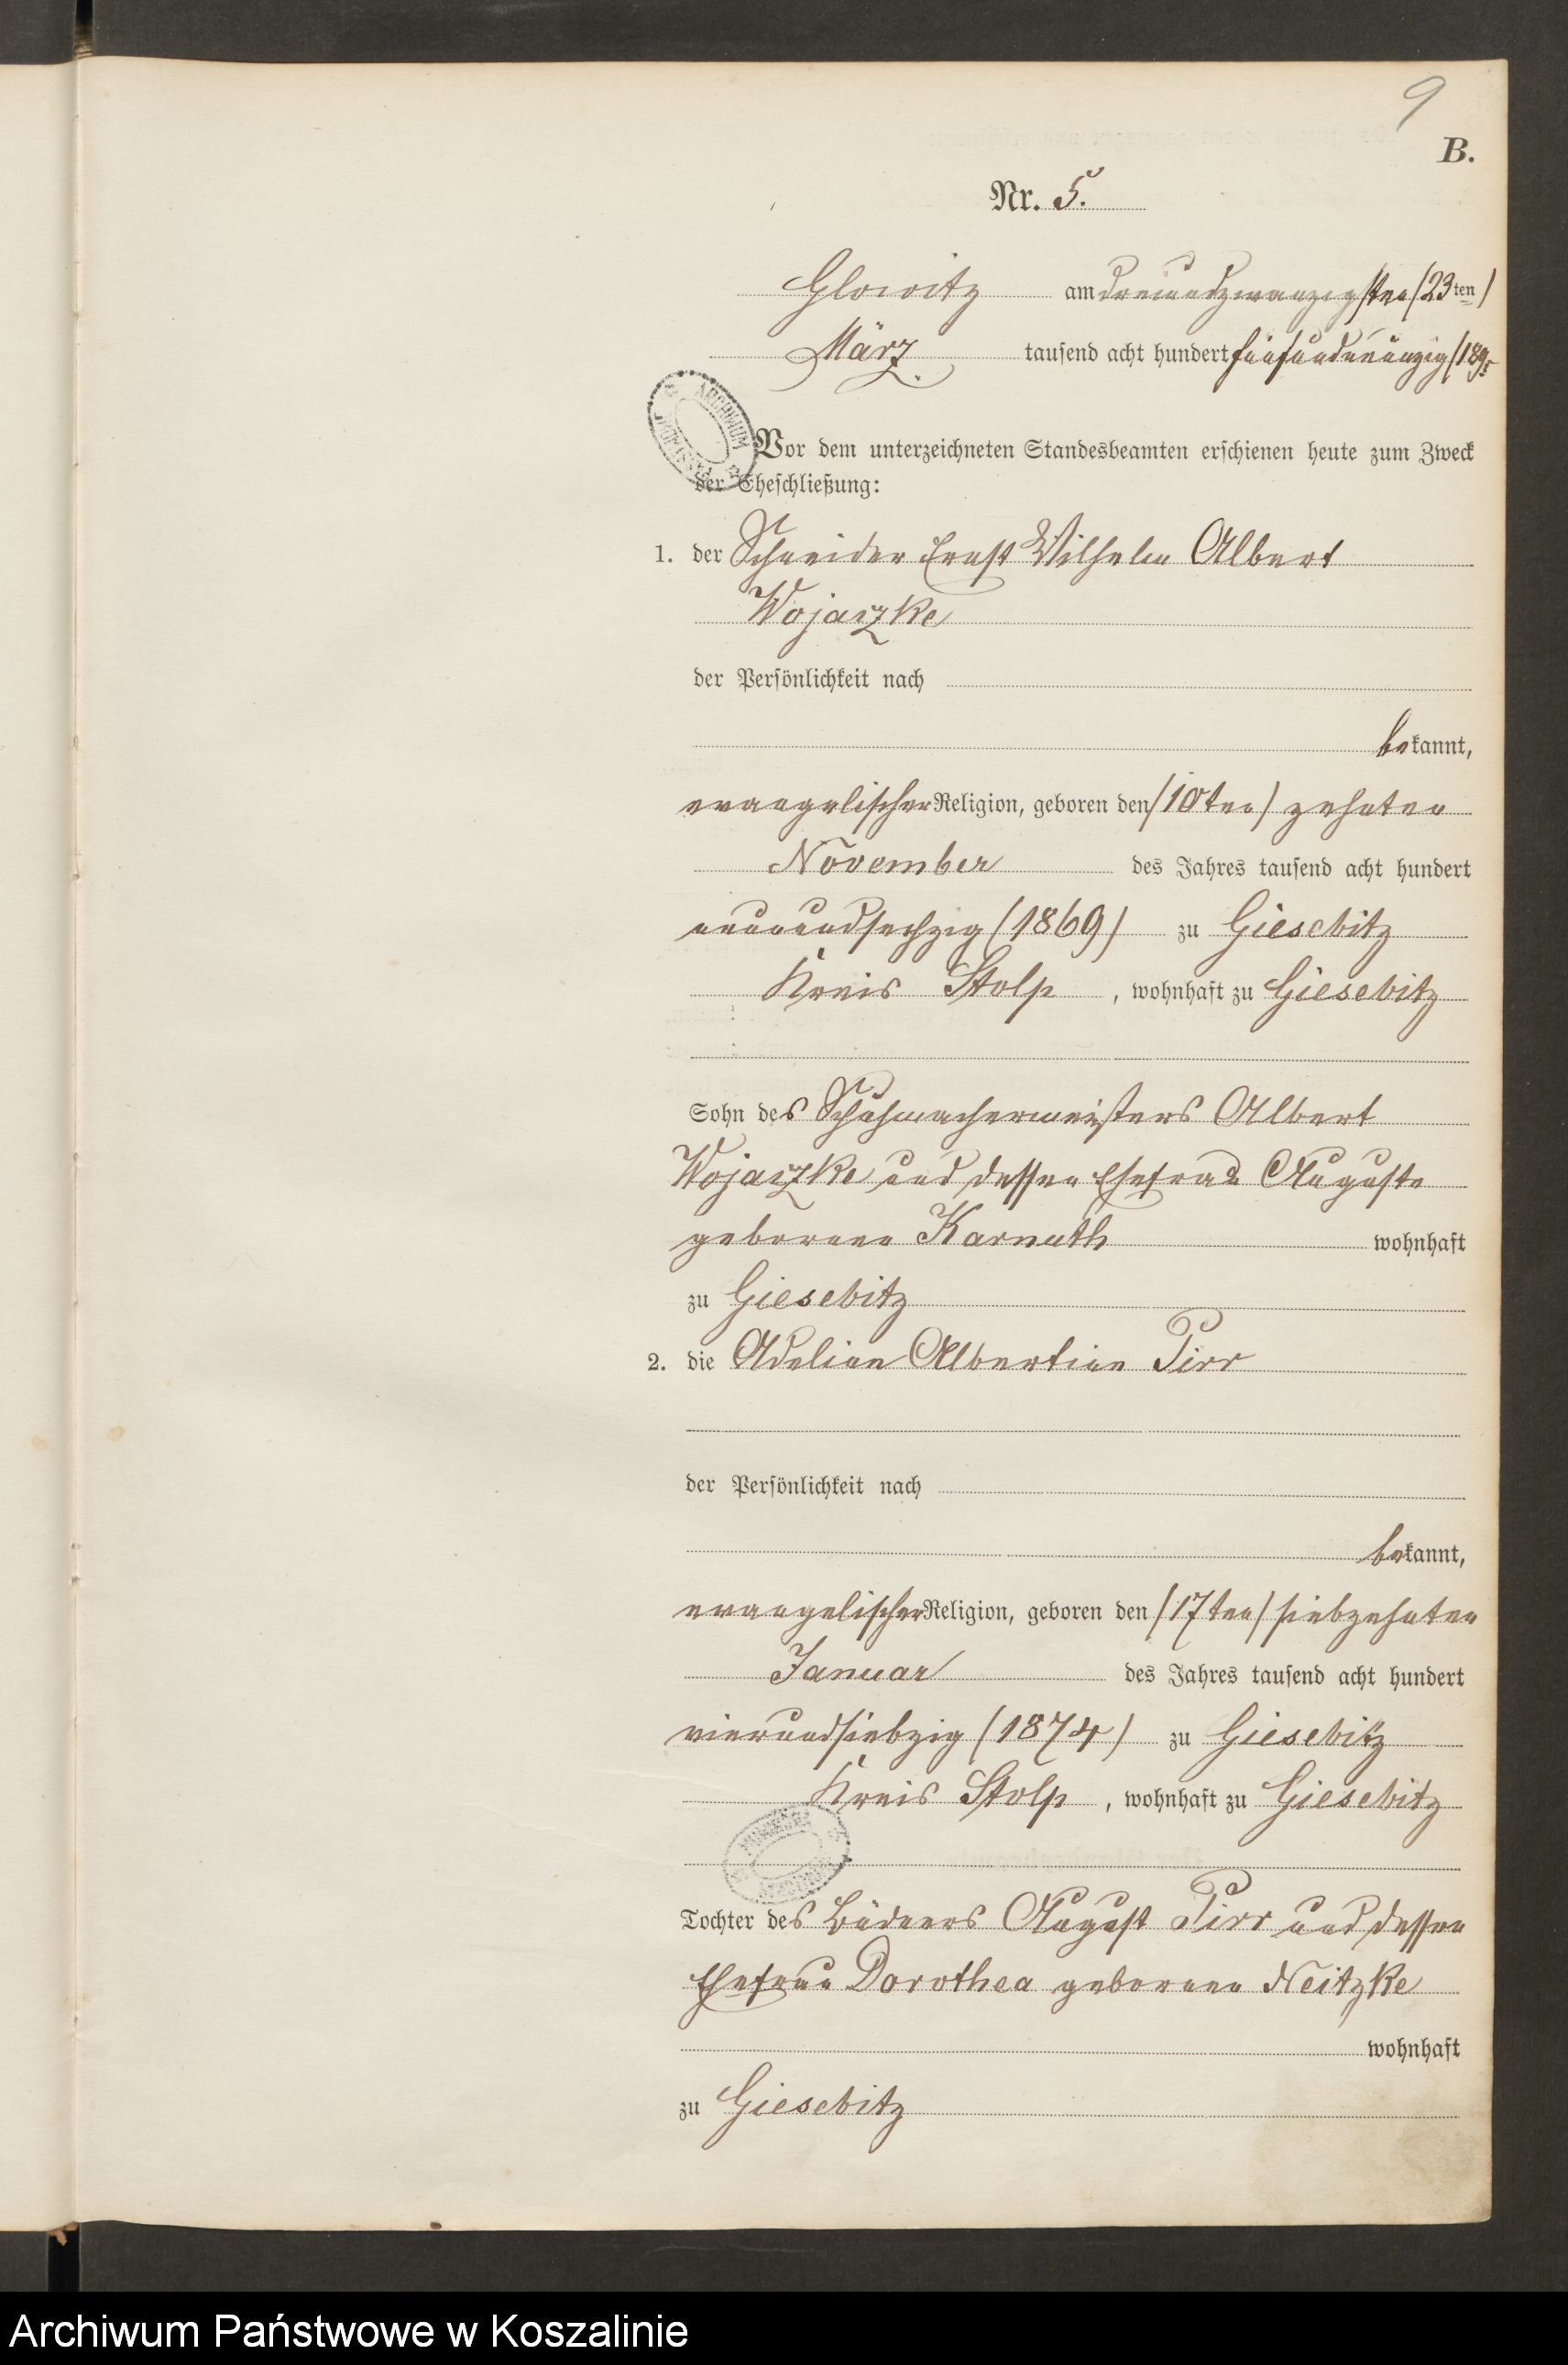 9
B.
Nr. 5.
Glowitz am dreiundzwanzigsten (23ten)
März tausend acht hundert fünfundneunzig (1895
Vor dem unterzeichneten Standesbeamten erschienen heute zum Zweck
der Eheschließung:
1. der Schneider Ernst Wilhelm Albert
Wojaszke
der Persönlichkeit nach
bekannt,
evangelischer Religion, geboren den (10ten) zehnten
November des Jahres tausend acht hundert
neunundsechzig (1869) zu Giesebitz
Kreis Stolp, wohnhaft zu Giesebitz
Sohn des Schuhmachermeisters Albert
Wojaszke und dessen Ehefrau Auguste
geborene Karnath wohnhaft
zu Giesebitz
2. die Adeline Albertine Pirr
der Persönlichkeit nach
bekannt,
evangelischer Religion, geboren den (17ten) siebzehnten
Januar des Jahres tausend acht hundert
vierundsiebzig (1874) zu Giesebitz
Kreis Stolp, wohnhaft zu Giesebitz
Tochter des Büdners August Pirr und dessen
Ehefrau Dorothea geborene Neitzke
wohnhaft
zu Giesebitz
Archiwum Państwowe w Koszalinie